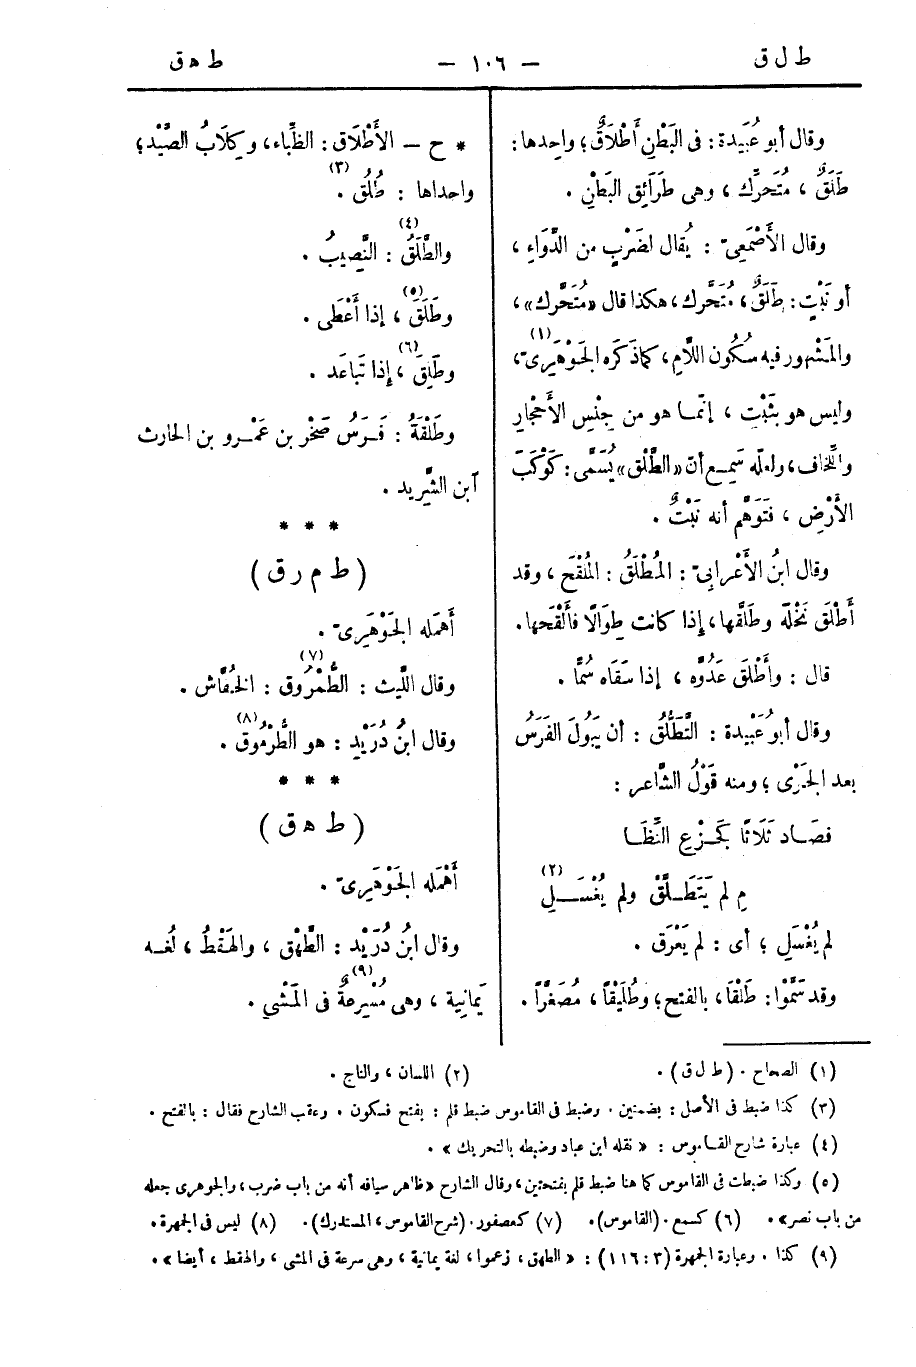 ط ل ق
— ١٠٦ —
ط ه ق
وقال أبو عُبَيدة : فى البَطْنِ أَطْلَاقٌ ؛ واحِدها :
طَلَقٌ ، مُتَحرِّك ، وهى طَرائِق البَطْنِ .
وقال الأَصْمَعىّ : يُقال لضَرْبٍ من الدَّوَاءِ ،
أو نَبْتٍ : طَلَقٌ ، مُتَحَّرك ، هكذا قال « مُتَحَّرك » ،
والمَشْهور فيه سُكُون اللَّامِ ، كما ذَكَره الجَوْهَرِىّ (١) ،
وليس هو بنَبْتٍ ، إنّمـا هو من جِنْسِ الأَحْجارِ
واللِّخاف ، ولعلّه سَمِـع أنّ « الطَّلْق » يُسَمَّى : كَوْكَبَ
الأَرْضِ ، فتَوَهَّم أنه نَبْتٌ .
وقال ابنُ الأَعْرابىّ : المُطْلَقُ : المُلْقَح ، وقد
أَطْلَق نَخْلَه وطَلَّقها ، إذا كانت طِوَالًا فأَلْقَحها .
قال : وأَطْلَق عَدُوَّه ، إذا سَقَاه سُمًّا .
وقال أبو عُبَيْدة : التَّطَلُّقُ : أن يَبُولَ الفَرَسُ
بعد الجَرْى ؛ ومنه قَوْلُ الشّاعر :
فصَـاد ثَلَاثًا كجَـزْعِ النِّظَـا
مِ لم يَتَطَـلَّقْ ولم يُغْسَـــلِ (٢)
لم يُغْسَلِ ؛ أى : لم يَعْرَق .
وقد سَمَّوْا : طَلْقًا ، بالفتح ؛ وطُلَيْقًا ، مُصَغَّرًا .
* ح — الأَطْلَاق : الظِّباء ، وكِلَابُ الصَّيْد ؛
واحداها : طُلُق (٣) .
والطَّلَقُ (٤) : النَّصِيبُ .
وطَلَقَ (٥) ، إذا أَعْطَى .
وطَلِقَ (٦) ، إذا تَباعَد .
وطَلْقَةُ : فَـرَسُ صَخْرِ بن عَمْـرو بن الحارث
آبن الشَّرِيد .
* * *
( ط م ر ق )
أَهمَله الجَوْهَرِىّ .
وقال اللَّيث : الطُّمْرُوق (٧) : الخُفَّاش .
وقال ابنُ دُرَيْدٍ : هو الطُّرْمُوق (٨) .
* * *
( ط ه ق )
أَهْمَله الجَوْهَرِىّ .
وقال ابنُ دُرَيْد : الطَّهْق ، والهَقْطُ ، لُغَـه
يَمانِية ، وهى مُسْرِعةٌ (٩) فى المَشْىِ .
(١) الصحاح . (ط ل ق) .
(٢) اللسان ، والتاج .
(٣) كذا ضبط فى الأصل : بضمتين . وضبط فى القاموس ضبط قلم : بفتح فسكون . وعقب الشارح فقال : بالفتح .
(٤) عبارة شارح القـاموس : « نقله ابن عباد وضبطه بالتحريك » .
(٥) وكذا ضبطت فى القاموس كما هنا ضبط قلم بفتحتين ، وقال الشارح «ظاهر سياقه أنه من باب ضرب ، والجوهرى جعله
من باب نصر» .
(٦) كسمع . (القاموس) .
(٧) كعصفور . (شرح القاموس ، المستدرك) .
(٨) ليس فى الجمهرة .
(٩) كذا . وعبارة الجمهرة (٣ : ١١٦) : « الطهق ، زعموا ، لغة يمانية ، وهى سرعة فى المشى ، والهقط ، أيضا » .